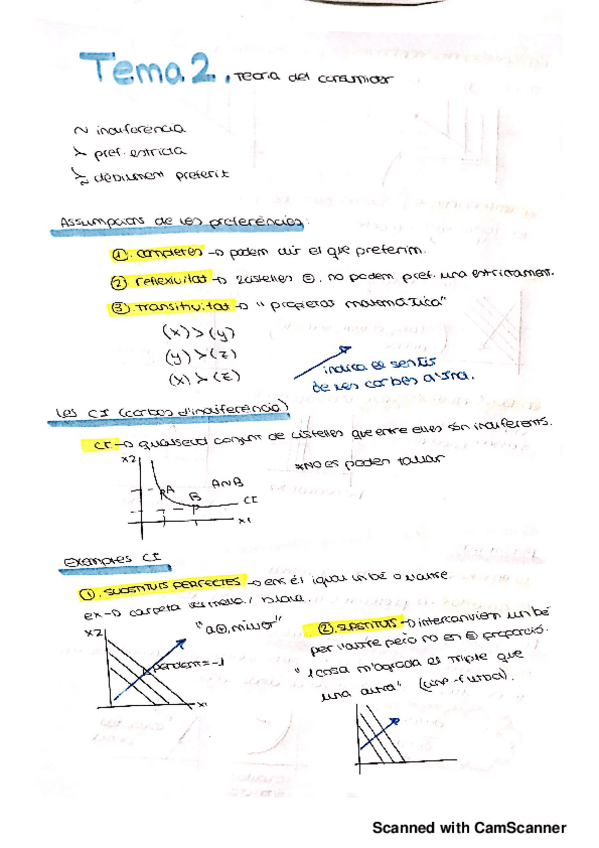 Tema 2. Teoria del consumidor
~ indiferència
≻ pref. estricta
≿ dèbilment preferit
Assumpcions de les preferències:
①. completes → podem dir el que preferim.
② reflexivitat → 2 cistelles ⊜, no podem pref. una estrictament.
③. transitivitat → "propietat matemàtica"
(x) ≻ (y)
(y) ≻ (z)
(x) ≻ (z)
indica el sentit
de les corbes
Les CI (corbes d'indiferència)
CI → qualsevol conjunt de cistelles que entre elles són indiferents.
*No es poden tallar
x2
A
B
A~B
CI
x1
Exemples CI
①. SUBSTITUTS PERFECTES → ens és igual un bé o l'altre
ex → carpeta vermella / blava.
x2
pendent = -1
x1
②. SUBSTITUTS → intercanviem un bé
per l'altre però no en ⊜ proporció.
"1 cosa m'agrada el triple que
una altra"
Scanned with CamScanner